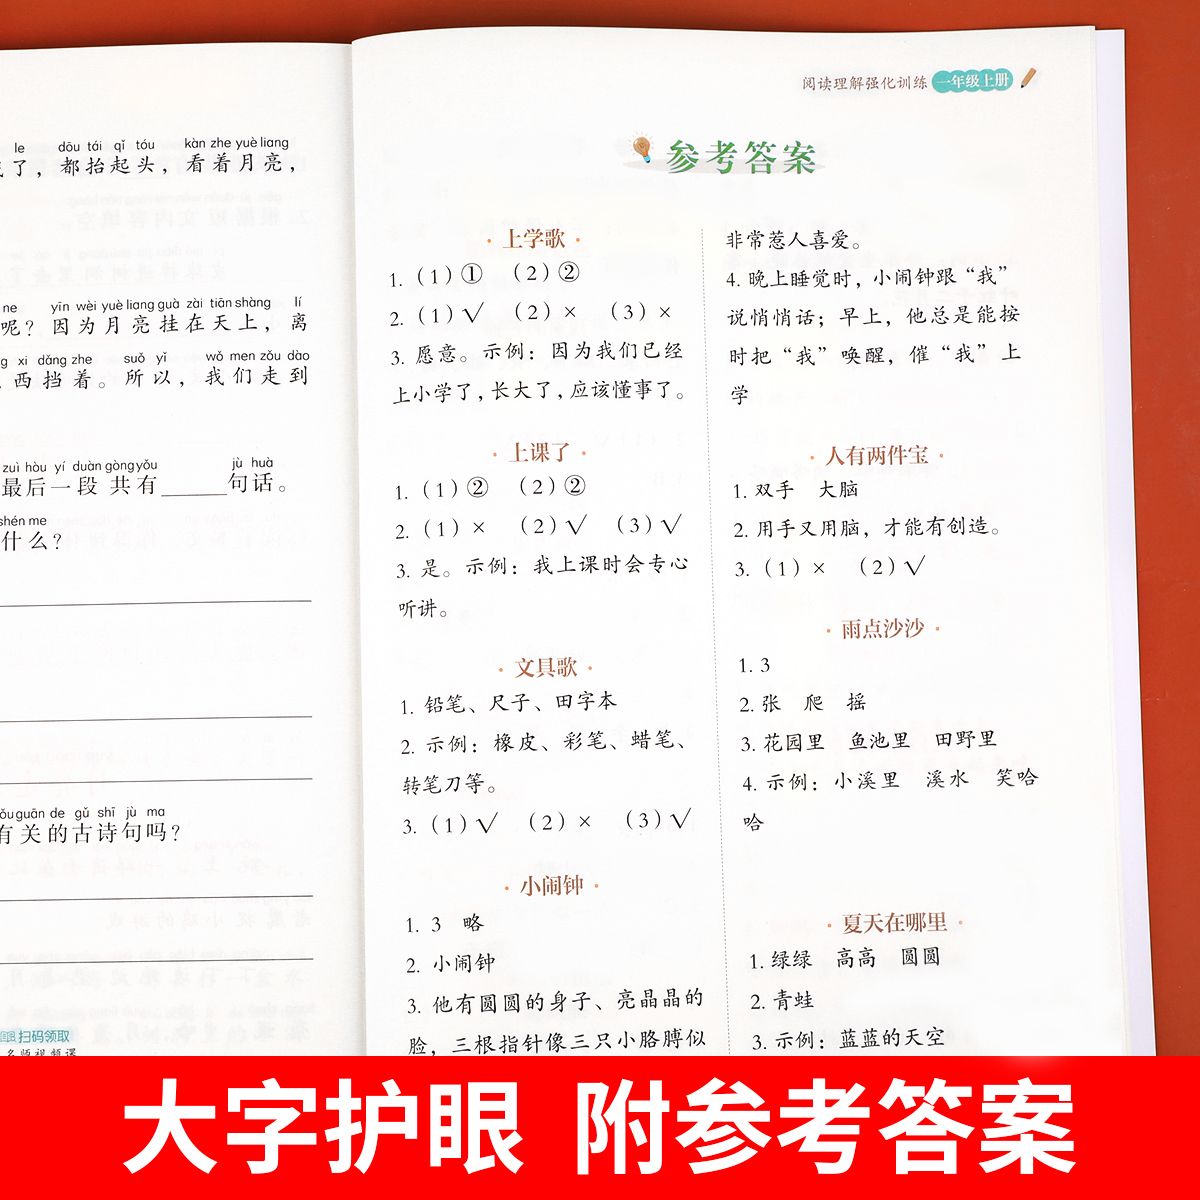 le dōu tái qǐ tóu kàn zhe yuè liang
了，都抬起头，看着月亮，
ne yīn wèi yuè liang guà zài tiān shàng lí
呢？因为月亮挂在天上，离
xi dǎng zhe suǒ yǐ wǒ men zǒu dào
西挡着。所以，我们走到
zuì hòu yí duàn gòng yǒu jù huà
最后一段共有______句话。
shén me
什么？
guān de gǔ shī jù ma
有关的古诗句吗？
扫码领取
名师视频课
阅读理解强化训练 一年级上册
参考答案
· 上学歌 ·
1.（1）① （2）②
2.（1）√ （2）× （3）×
3. 愿意。示例：因为我们已经
上小学了，长大了，应该懂事了。
· 上课了 ·
1.（1）② （2）②
2.（1）× （2）√ （3）√
3. 是。示例：我上课时会专心
听讲。
· 文具歌 ·
1. 铅笔、尺子、田字本
2. 示例：橡皮、彩笔、蜡笔、
转笔刀等。
3.（1）√ （2）× （3）√
· 小闹钟 ·
1. 3 略
2. 小闹钟
3. 他有圆圆的身子、亮晶晶的
脸，三根指针像三只小胳膊似
非常惹人喜爱。
4. 晚上睡觉时，小闹钟跟“我”
说悄悄话；早上，他总是能按
时把“我”唤醒，催“我”上
学
· 人有两件宝 ·
1. 双手 大脑
2. 用手又用脑，才能有创造。
3.（1）× （2）√
· 雨点沙沙 ·
1. 3
2. 张 爬 摇
3. 花园里 鱼池里 田野里
4. 示例：小溪里 溪水 笑哈
哈
· 夏天在哪里 ·
1. 绿绿 高高 圆圆
2. 青蛙
3. 示例：蓝蓝的天空
大字护眼 附参考答案